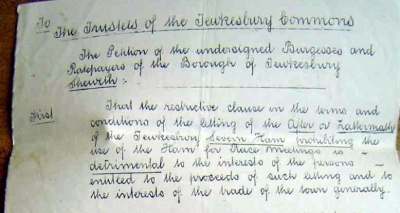 To
The Trustees of the Tewkesbury Commons
The Petition of the undersigned Burgesses and
Ratepayers of the Borough of Tewkesbury
Sheweth :-
First That the restrictive clause in the terms and
conditions of the letting of the After or Lattermath
of the Tewkesbury Severn Ham prohibiting the
use of the Ham for Race Meetings is -
detrimental to the interests of the persons -
entitled to the proceeds of such letting and to
the interests of the trade of the town generally.